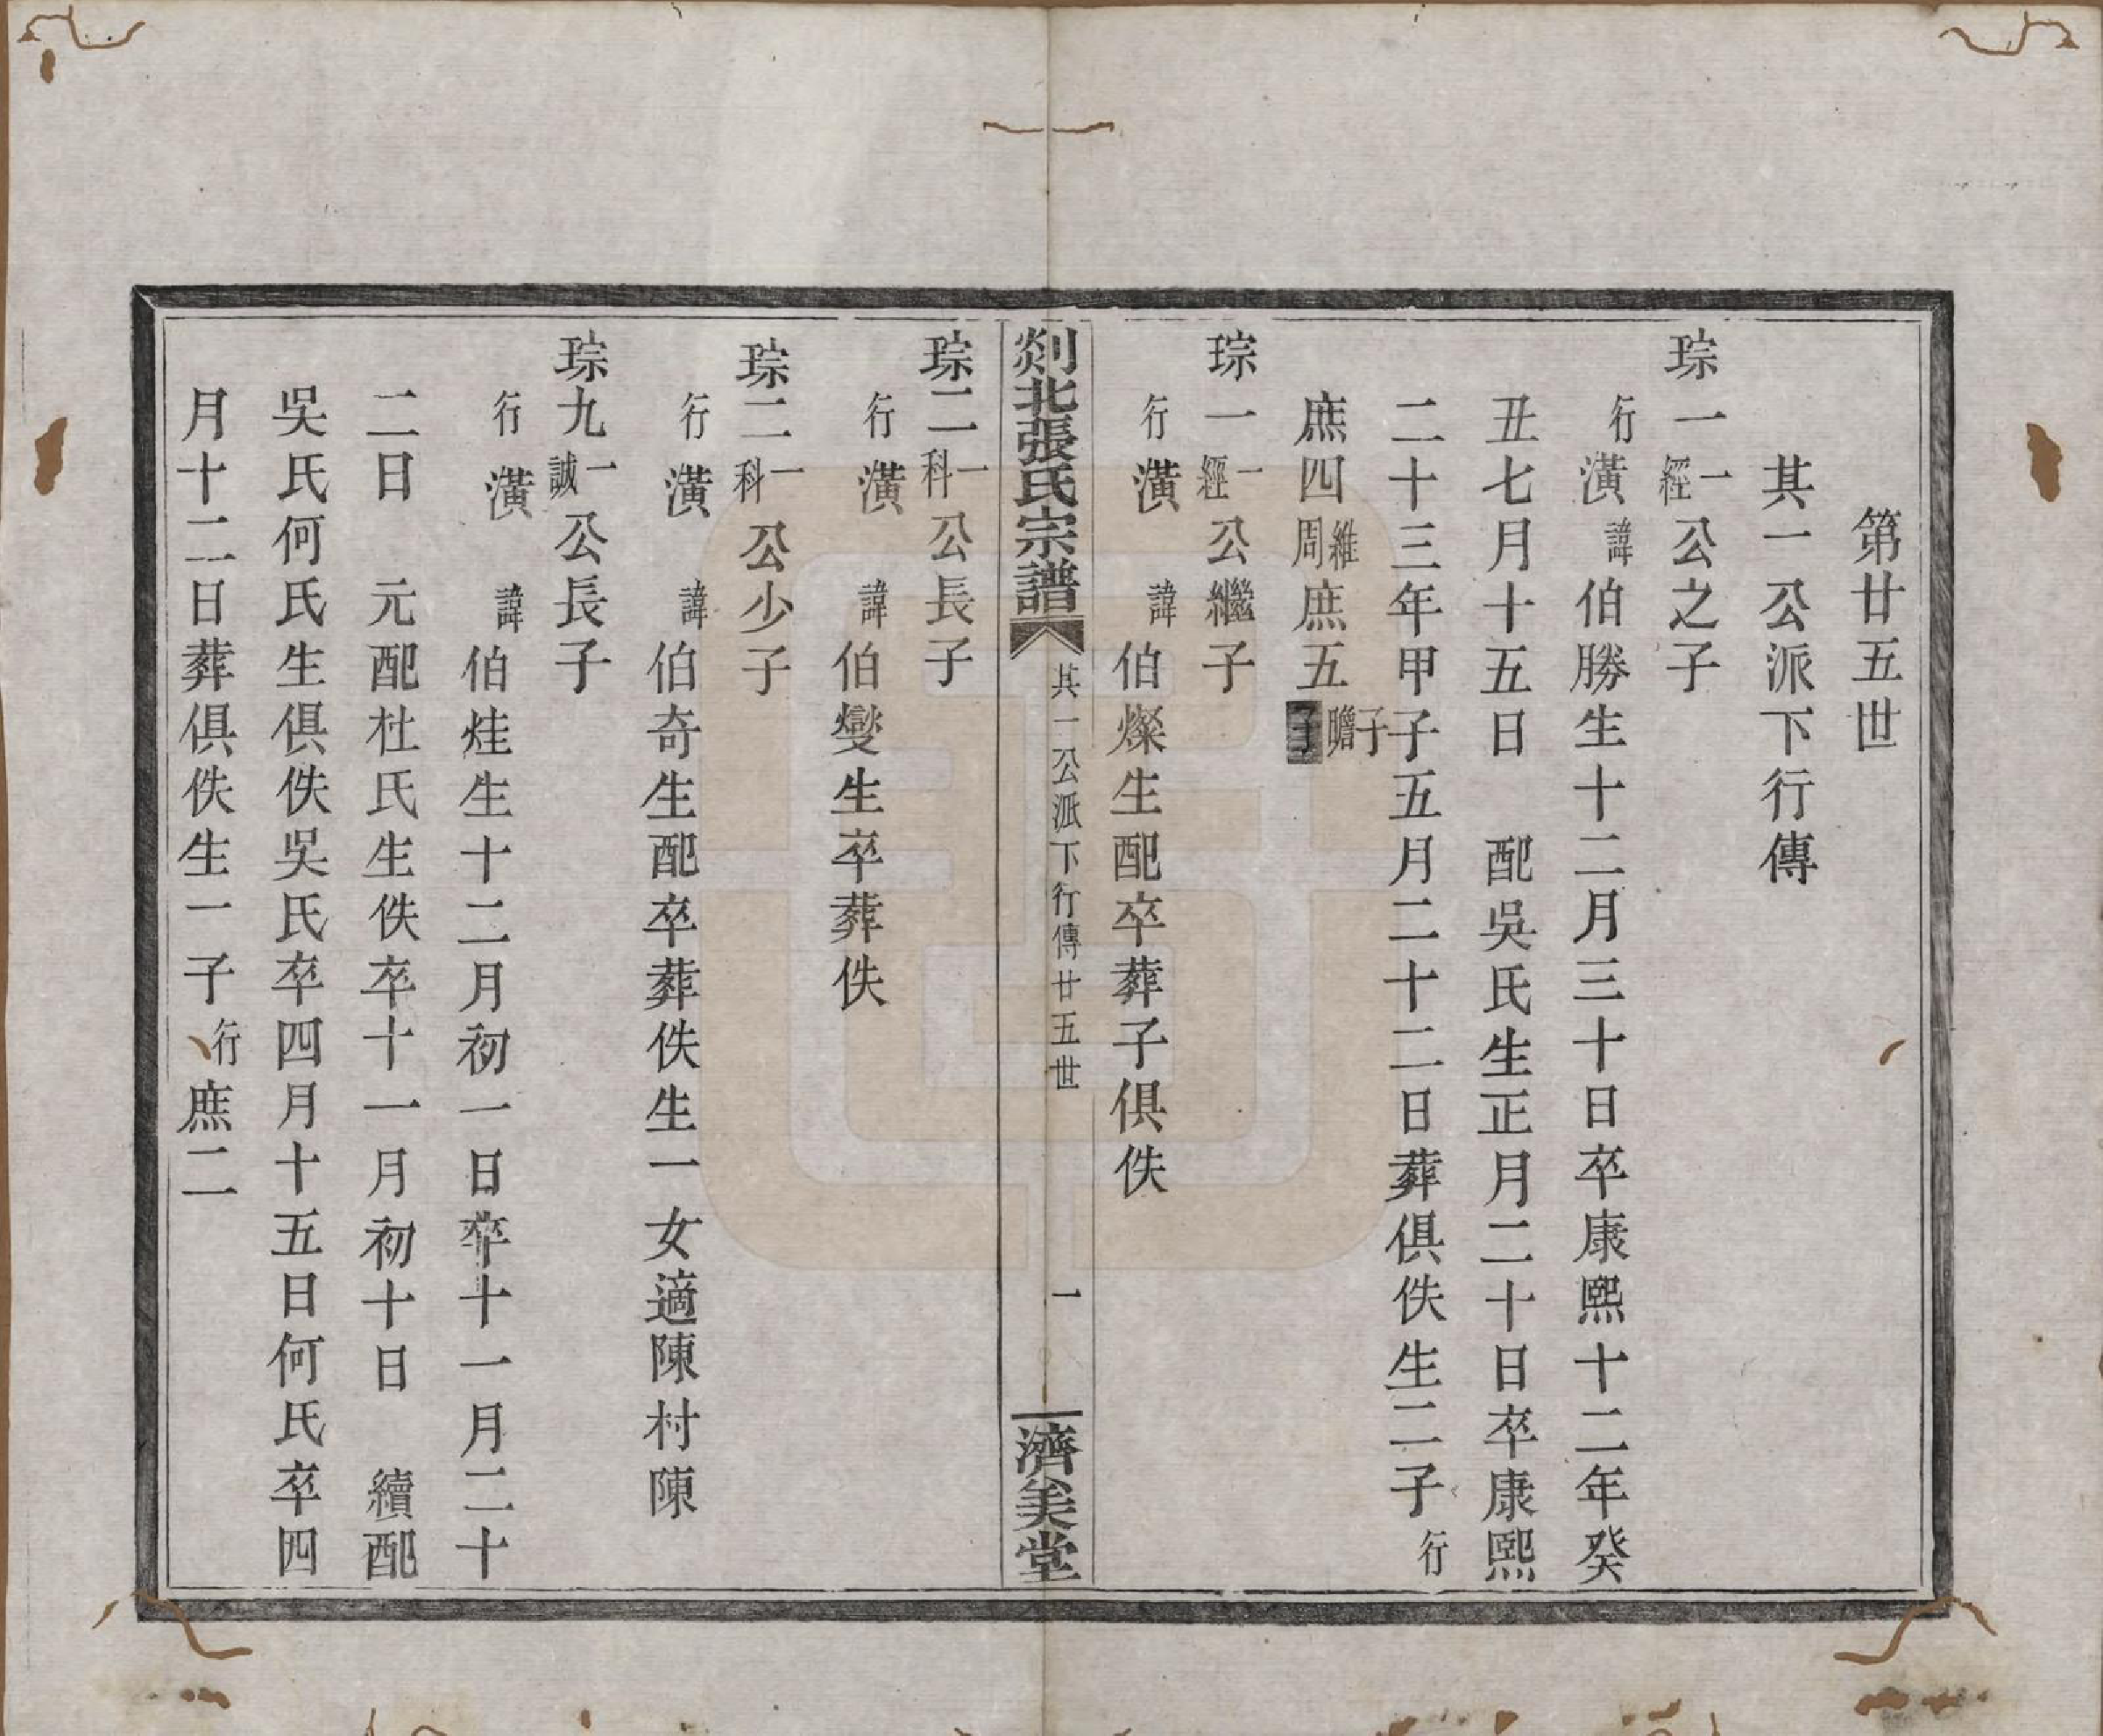 第廿五世
其一公派下行傳
琮一一經公之子
行潢諱伯勝生十二月三十日卒康熙十二年癸
丑七月十五日　配吳氏生正月二十日卒康熙
二十三年甲子五月二十二日葬俱佚生二子行
庶四維周庶五子瞻子
琮一一經公繼子
行潢　諱伯燦生配卒葬子俱佚
剡北張氏宗譜　其一公派下行傳廿五世　一　濟美堂
琮二一科公長子
行潢　諱伯燮生卒葬佚
琮二一科公少子
行潢　諱伯奇生配卒葬佚生一女適陳村陳
琮九一誠公長子
行潢　諱伯烓生十二月初一日卒十一月二十
二日　元配杜氏生佚卒十一月初十日　續配
吳氏何氏生俱佚吳氏卒四月十五日何氏卒四
月十二日葬俱佚生一子行庶二